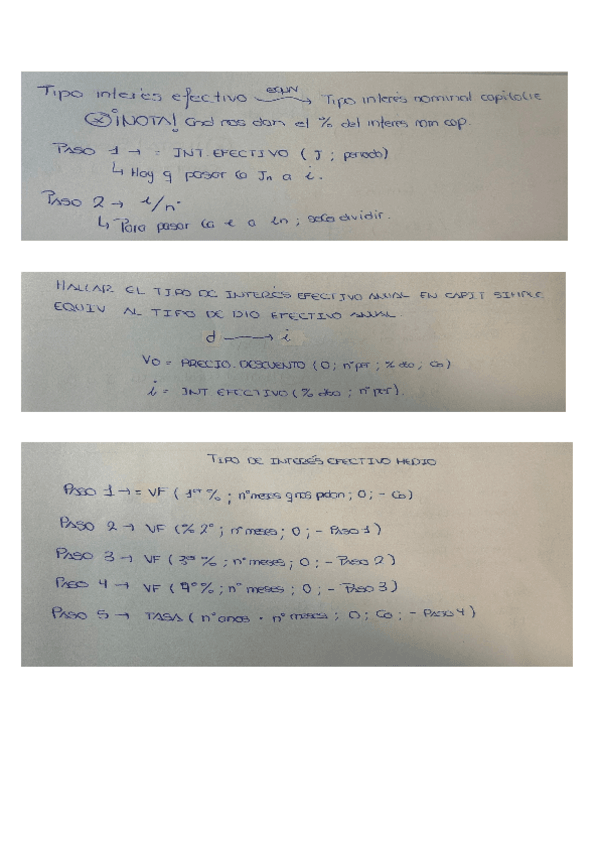 Tipo interés efectivo equiv → Tipo interés nominal capitable
⊗ ¡NOTA! Cnd nos dan el % del interes nom cap.
PASO 1 → = INT.EFECTIVO ( J ; periodo)
↳ Hay q pasar Jn a i.
PASO 2 → i/n
↳ Para pasar i a in ; solo dividir.
HALLAR EL TIPO DE INTERÉS EFECTIVO ANUAL EN CAPIT SIMPLE
EQUIV AL TIPO DE DTO EFECTIVO ANUAL.
d → i
Vo = PRECIO.DESCUENTO (0; nºper ; % dto ; Cn)
i = INT EFECTIVO (% dto ; nº per).
TIPO DE INTERÉS EFECTIVO MEDIO
PASO 1 → = VF ( 1er % ; nº meses q nos pidan ; 0 ; - Co)
PASO 2 → VF (% 2º ; nº meses ; 0 ; - PASO 1)
PASO 3 → VF ( 3er % ; nº meses ; 0 ; - PASO 2)
PASO 4 → VF ( 4º % ; nº meses ; 0 ; - PASO 3)
PASO 5 → TASA ( nº anos · nº meses ; 0 ; Co ; - PASO 4)